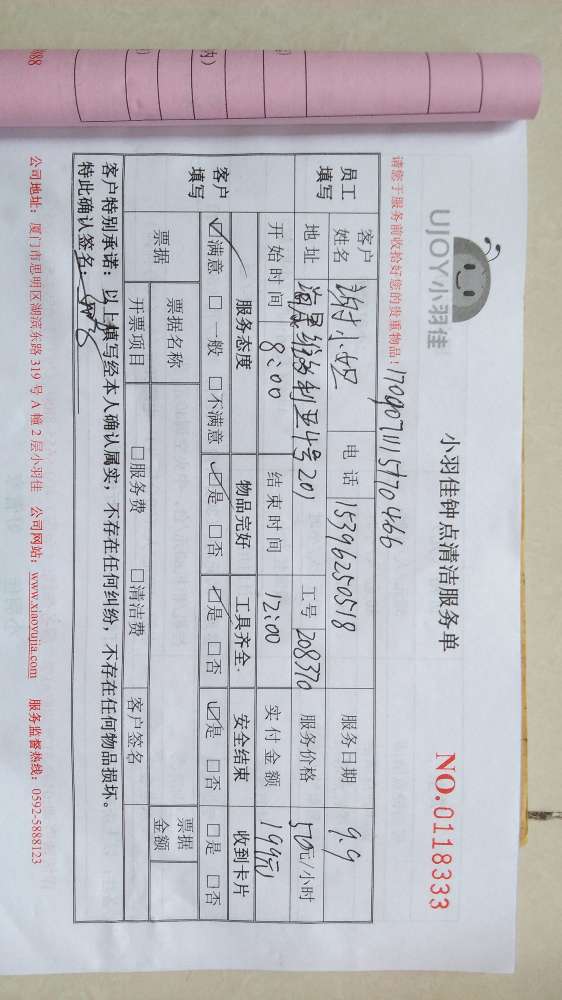 UJOY小羽佳
小羽佳钟点清洁服务单
NO.0118333
请您于服务前收拾好您的贵重物品！
员工填写
客户姓名 谢小姐 电话 15396250518 服务日期 9.9
地址 201 工号 208370 服务价格 50元/小时
开始时间 8:00 结束时间 12:00 实付金额 199元
客户填写
服务态度 物品完好 工具齐全 安全结束 收到卡片
☑满意 □一般 □不满意 ☑是 □否 ☑是 □否 ☑是 □否 □是 □否
票据 票据名称 票据金额
开票项目 □服务费 □清洁费 客户签名
客户特别承诺：以上填写经本人确认属实，不存在任何纠纷，不存在任何物品损坏。
特此确认签名：
公司地址：厦门市思明区湖滨东路 319 号 A 幢 2 层小羽佳 公司网站：www.xiaoyujia.com 服务监督热线：0592-5888123